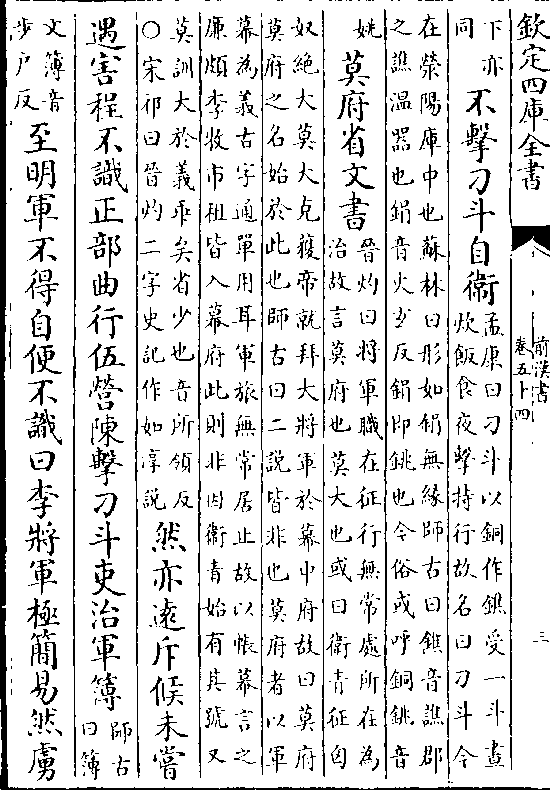 欽定四庫全書
前漢書
卷五十四
三
下亦
同
不擊刀斗自衛
孟康曰刁斗以銅作鐎受一斗晝
炊飯食夜擊持行故名曰刁斗今
在滎陽庫中也蘇林曰形如鋗無緣師古曰鐎音譙郡
之譙温器也鋗音火玄反鋗即銚也今俗或呼銅銚音
姚
莫府省文書
晉灼曰將軍職在征行無常處所在為
治故言莫府也莫大也或曰衛青征匈
奴絶大莫大克獲帝就拜大將軍於幕中府故曰莫府
莫府之名始於此也師古曰二說皆非也莫府者以軍
幕為義古字通單用耳軍旅無常居止故以帳幕言之
廉頗李牧市租皆入幕府此則非因衛青始有其號又
莫訓大於義乖矣省少也音所領反
○宋祁曰晉灼二字史記作如淳說
然亦逺斥候未嘗
遇害程不識正部曲行伍營陳擊刀斗吏治軍簿
師古
曰簿
文簿音
步户反
至明軍不得自便不識曰李將軍極簡易然虜